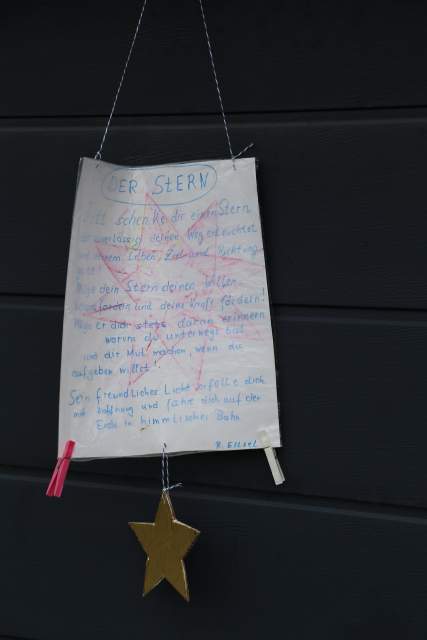 DER STERN
schenke dir einen Stern
deinen Weg erleuchtet
Leben, Ziel und Richtung
dein Stern deinen Willen
und deine Kraft fördern!
er dich stets daran erinnern
warum du unterwegs bist
und dir Mut machen, wenn du
aufgeben willst!
Sein freundliches Licht erfülle dich
mit Hoffnung und führe dich auf der
Erde in himmlischer Bahn